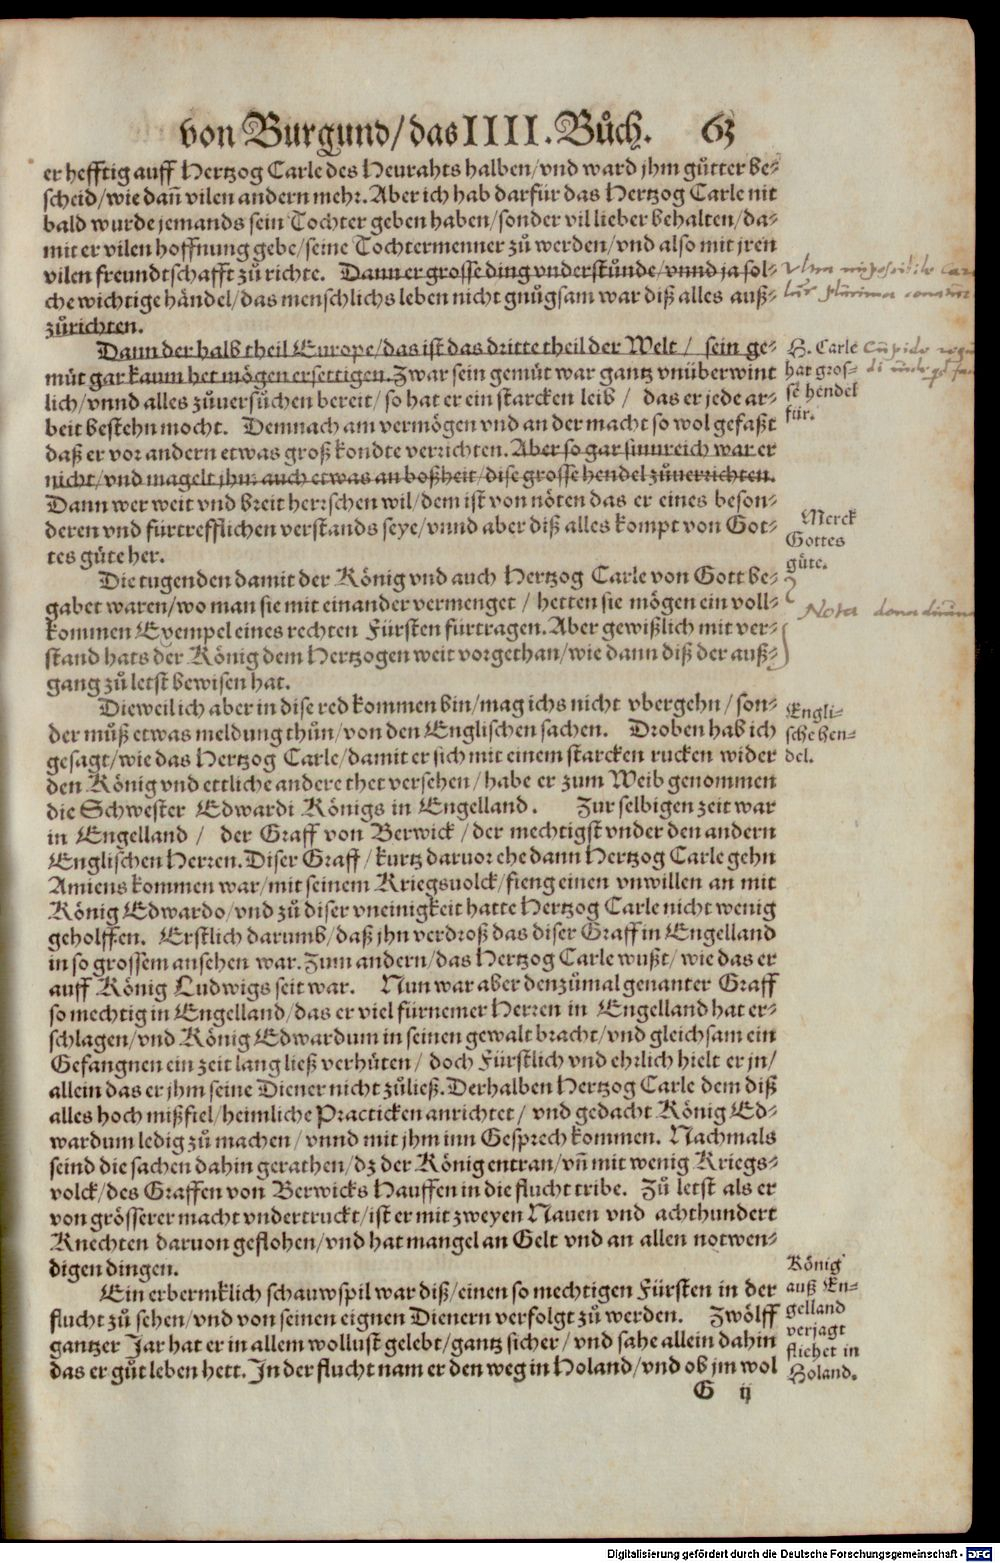 von Burgund/das IIII. Bůch. 63
er hefftig auff Hertzog Carle des Heurahts halben/vnd ward jhm gůtter be⸗
scheid/wie dañ vilen andern mehr. Aber ich hab darfür das Hertzog Carle nit
bald wurde jemands sein Tochter geben haben/sonder vil lieber behalten/da⸗
mit er vilen hoffnung gebe/seine Tochtermenner zů werden/vnd also mit jren
vilen freundtschafft zů richte. Dann er grosse ding vnderstůnde/vnnd ja sol⸗
che wichtige händel/das menschlichs leben nicht gnůgsam war diß alles auß⸗
zůrichten.
Dann der halb theil Europe/das ist das dritte theil der Welt/ sein ge⸗
můt gar kaum het mögen ersettigen. Zwar sein gemůt war gantz vnüberwint
lich/vnnd alles zůuersůchen bereit/so hat er ein starcken leib/ das er jede ar⸗
beit bestehn mocht. Demnach am vermögen vnd an der macht so wol gefaßt
daß er vor andern etwas groß kondte verrichten. Aber so gar sinnreich war er
nicht/vnd magelt jhm auch etwas an boßheit/dise grosse hendel zůuerrichten.
Dann wer weit vnd breit herrschen wil/dem ist von nöten das er eines beson⸗
deren vnd fürtrefflichen verstands seye/vnnd aber diß alles kompt von Got⸗
tes güte her.
Die tugenden damit der König vnd auch Hertzog Carle von Gott be⸗
gabet waren/wo man sie mit einander vermenget/ hetten sie mögen ein voll⸗
kommen Exempel eines rechten Fürsten fürtragen. Aber gewißlich mit ver⸗
stand hats der König dem Hertzogen weit vorgethan/wie dann diß der auß⸗
gang zů letst bewisen hat.
Dieweil ich aber in dise red kommen bin/mag ichs nicht vbergehn/ son⸗
der můß etwas meldung thůn/von den Englischen sachen. Droben hab ich
gesagt/wie das Hertzog Carle/damit er sich mit einem starcken rucken wider
den König vnd ettliche andere thet versehen/ habe er zum Weib genommen
die Schwester Edwardi Königs in Engelland. Zur selbigen zeit war
in Engelland/ der Graff von Berwick/der mechtigst vnder den andern
Englischen Herren. Diser Graff/kurtz daruor ehe dann Hertzog Carle gehn
Amiens kommen war/mit seinem Kriegsuolck/fieng einen vnwillen an mit
König Edwardo/vnd zů diser vneinigkeit hatte Hertzog Carle nicht wenig
geholffen. Erstlich darumb/daß jhn verdroß das diser Graff in Engelland
in so grossem ansehen war. Zum andern/das Hertzog Carle wußt/wie das er
auff König Ludwigs seit war. Nun war aber denzůmal genanter Graff
so mechtig in Engelland/das er viel fürnemer Herren in Engelland hat er⸗
schlagen/vnd König Edwardum in seinen gewalt bracht/vnd gleichsam ein
Gefangnen ein zeit lang ließ verhüten/ doch Fürstlich vnd ehrlich hielt er jn/
allein das er jhm seine Diener nicht zůließ. Derhalben Hertzog Carle dem diß
alles hoch mißfiel/heimliche Practicken anrichtet/ vnd gedacht König Ed⸗
wardum ledig zů machen/vnnd mit jhm inn Gesprech kommen. Nachmals
seind die sachen dahin gerathen/dz der König entran/vñ mit wenig Kriegs⸗
volck/des Graffen von Berwicks Hauffen in die flucht tribe. Zů letst als er
von grösserer macht vndertruckt/ist er mit zweyen Nauen vnd achthundert
Knechten daruon geflohen/vnd hat mangel an Gelt vnd an allen notwen⸗
digen dingen.
Ein erbermklich schauwspil war diß/einen so mechtigen Fürsten in der
flucht zů sehen/vnd von seinen eignen Dienern verfolgt zů werden. Zwölff
gantzer Jar hat er in allem wollust gelebt/gantz sicher/vnd sahe allein dahin
das er gůt leben hett. In der flucht nam er den weg in Holand/vnd ob jm wol
G ij
H. Carle
hat gros⸗
sē hendel
für.
Merck
Gottes
güte.
Nota dona
Engli⸗
sche hen⸗
del.
König
auß En⸗
gelland
verjagt
fliehet in
Holand.
Digitalisierung gefördert durch die Deutsche Forschungsgemeinschaft - DFG